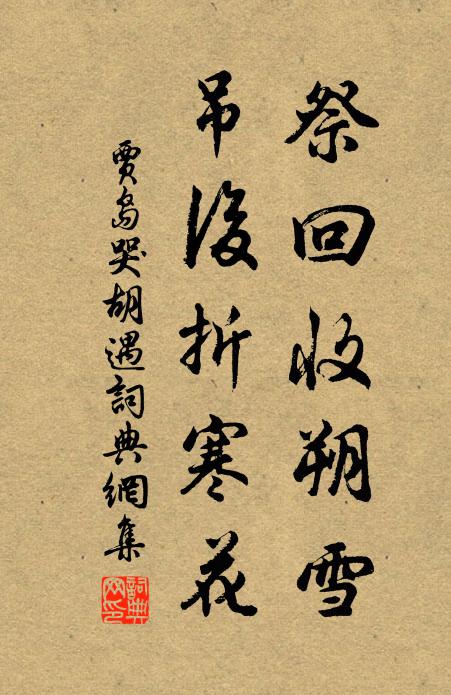 祭回收朔雪
吊後折寒花
賈島哭胡遇詞典網集
詞典网印